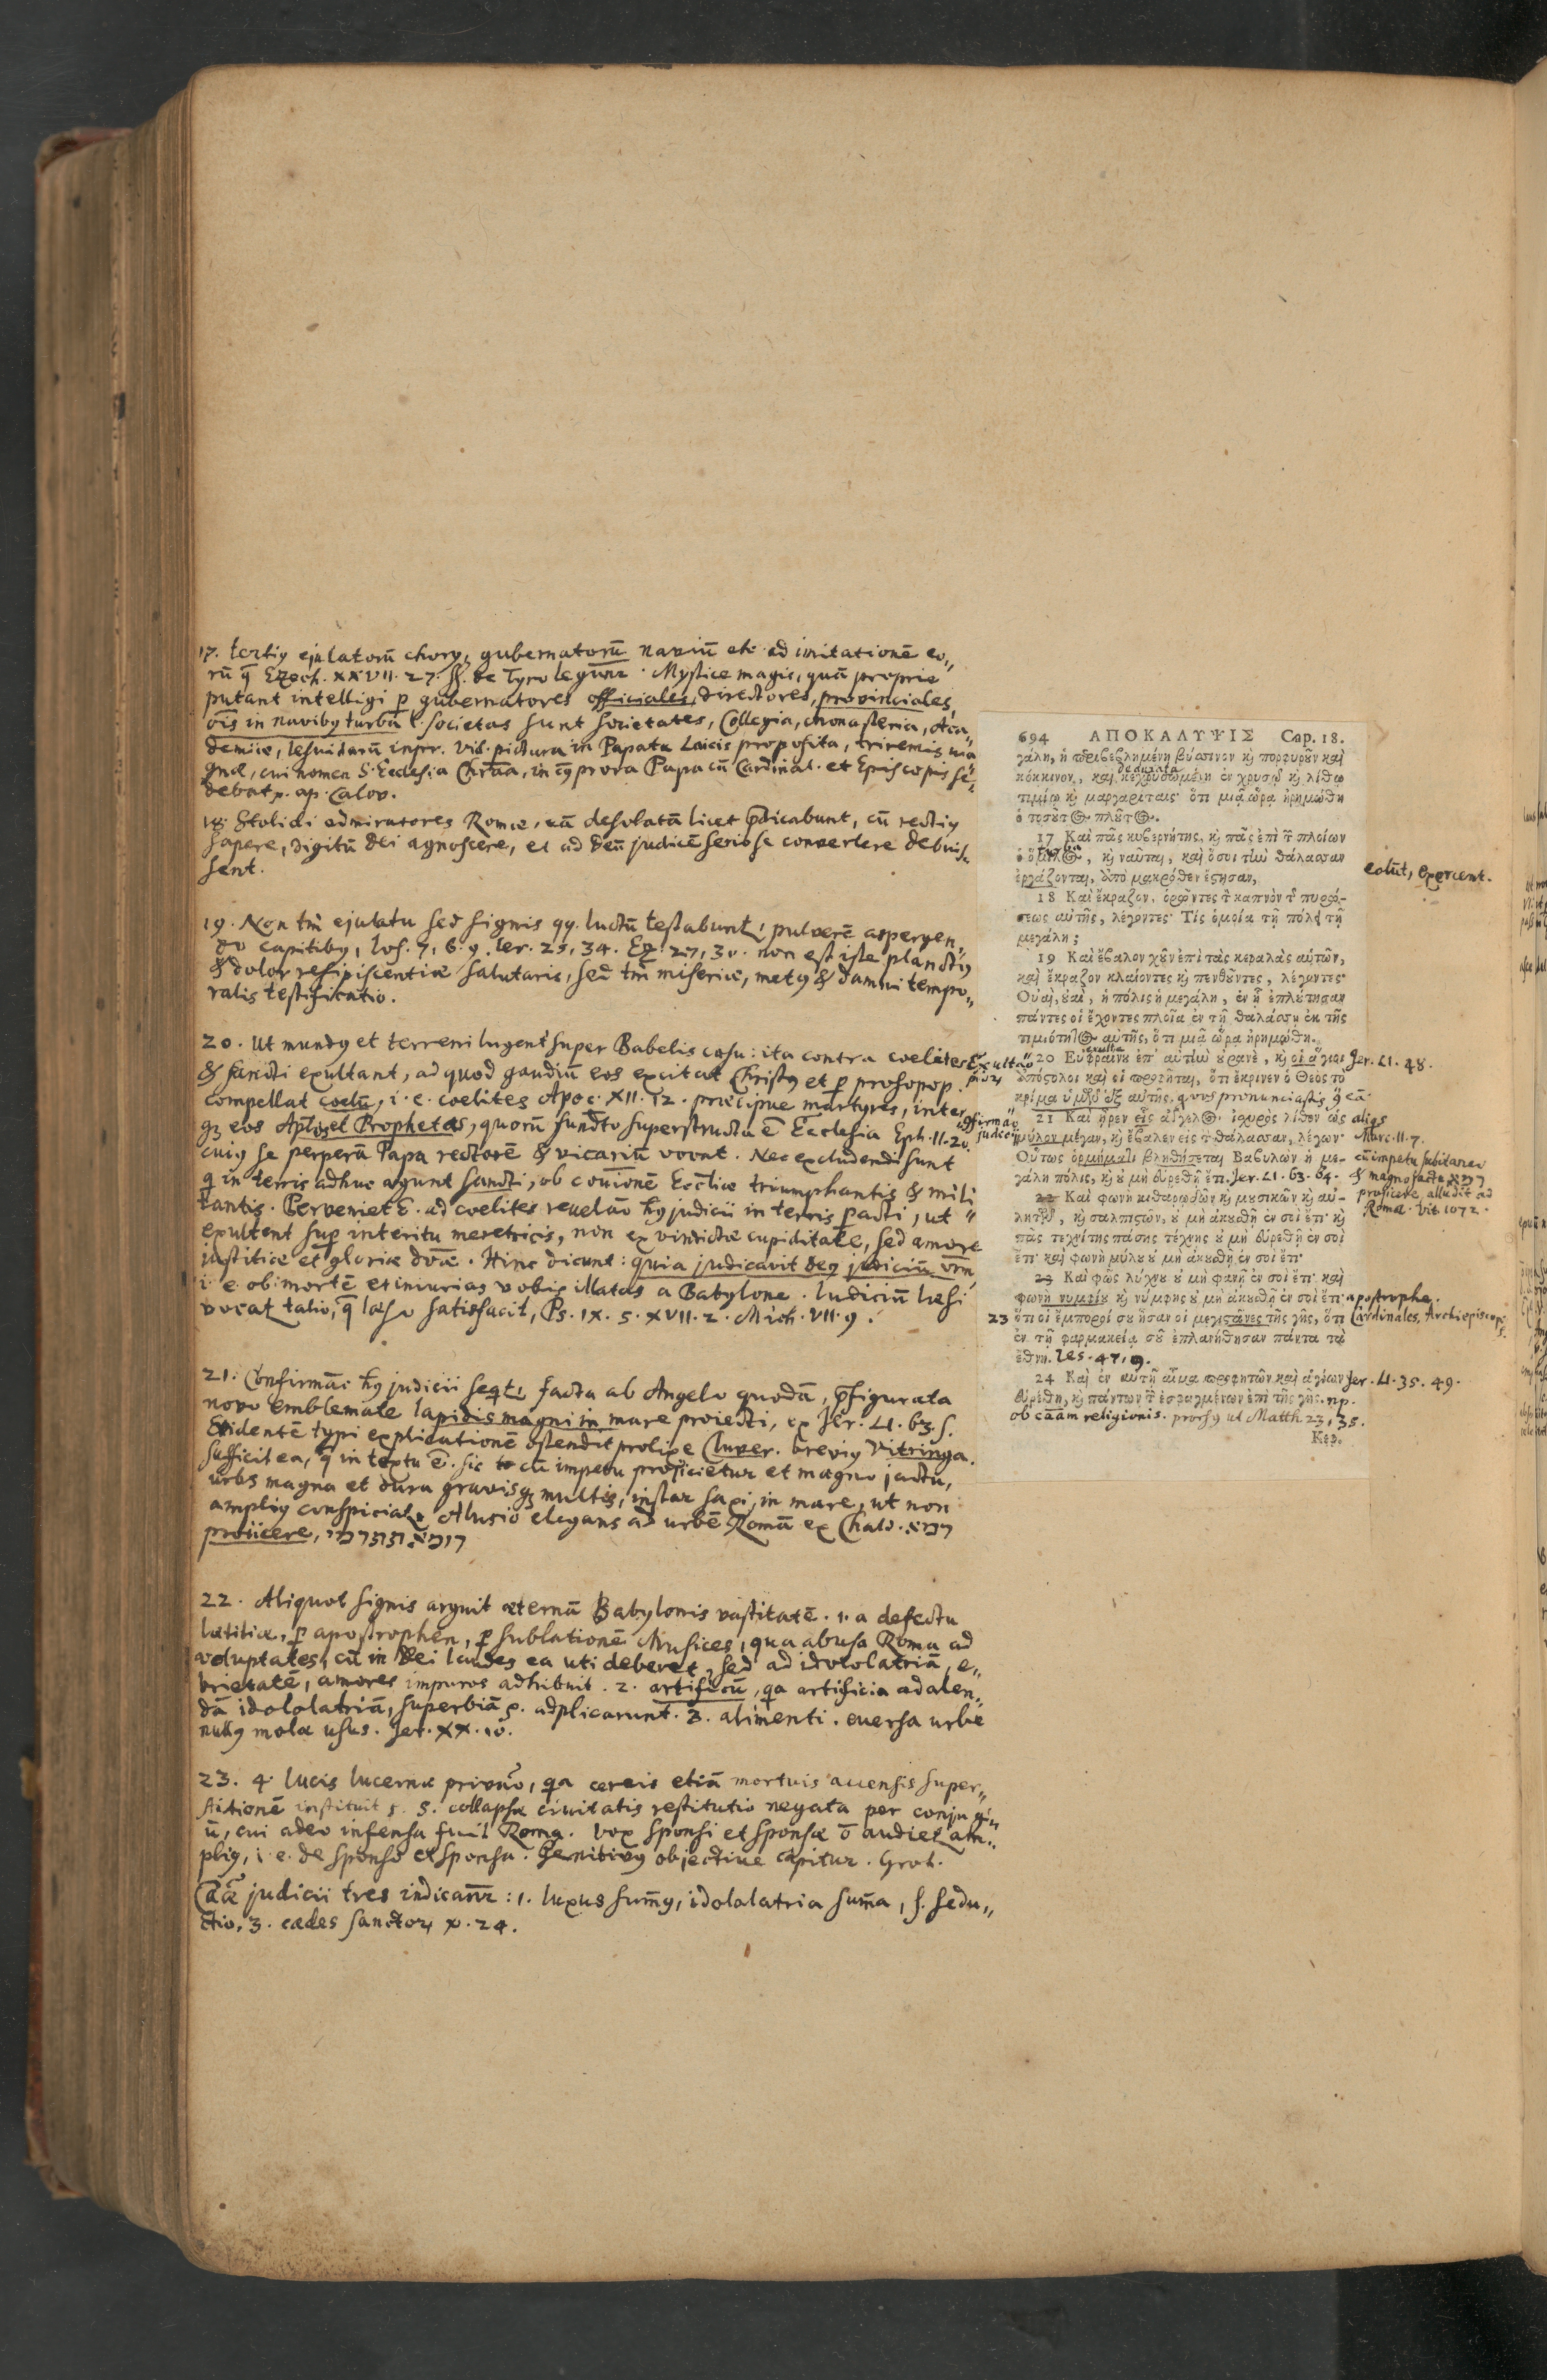 17. tertiꝰ ejulatorū chorꝰ, gubernatorū naviū etc. ad imitationē eo„
rū q̄ Ezech. XXVII. 27. ſſ. de Tyro legūnr. Myſtice magis, quā proprie
putant intelligi p gubernatores officiales, directores, provinciales,
oīs in navibꝰ turba l. ſocietas ſunt ſocietates, Collegia, monaſteria, Aca„
demiæ, Ieſuidarū inpr. Vid. pictura in Papatu Laicis propoſita, triremis ma„
gnæ, cui nomen S. Eccleſia Chrīana, in cꝰ prora Papa cū Cardinal. et Episcopis ſe„
debat. ap. Calov.
18. Stolidi admiratores Romæ, eā deſolatā licet p̄dicabunt, cū rectiꝰ
ſapere, digitū dei agnoſcere, et ad deū judicē ſerio ſe convertere debuiſ„
ſent.
19. Non tm̄ ejulatu ſed ſignis qq. luctū teſtabunt, pulverē aſpergen„
do capitibꝰ, Ioſ. 7, 6. Ier. 25, 34. Ez. 27, 30. non eſt iſte planctꝰ
& dolor reſipiſcentiæ ſalutaris, ſed tm̄ miſeriæ, metꝰ & damni tempo„
ralis teſtificatio.
20. Ut mundꝰ et terreni lugent ſuper Babelis caſu: ita contra coelites
& ſancti exultant, ad quod gaudiū eos excitat Chriſtꝰ et p proſopop.
compellat coelū, i. e. coelites Apoc. XII. 12. præcipue martyres, inter
qꝫ eos Apl̄os et Prophetas, quorū fundto ſuperſtructa ē Eccleſia Eph. II. 20.
cuiꝰ ſe perperā Papa rectorē & vicariū vovnt. Nec excludendi ſunt
q in terris adhuc agunt ſancti, ob cōm̄ionē Eccl̄iæ triumphantis & mili„
tantis. Perveniet ē. ad coelites revelāo hꝰ judicii in terris pacti, ut
exultent ſup interitu meretricis, non ex vindictæ cupiditate, ſed amore
juſtitiæ et gloriæ dvæ. Hinc dicunt: quia judicavit deꝰ judiciū vrm̄
i. e. ob mortē et iniurias vobis illatas a Babylone. Iudiciū hoſi
vocat talio, q̄ læſo ſatisfacit, Ps. IX. 5. XVII. 2. Mich. VII. 9.
21. Confirmāo hꝰ judicii ſeqt, facta ab Angelo quodā, p̄figurata
novo emblemate lapidis magni in mare proiecti, ex Jer. LI. 63. ſ.
Evidentē typi explicationē oſtendit prolixe Cluver. breviꝰ Vitringa.
Sufficit ea, q̄ in textu ē. ſic cū impetu projicietur et magno jactu,
urbs magna et dura gravisqꝫ multis, inſtar ſaxi, in mare, ut non
ampliꝰ conſpiciat. Aluſio elegans ad urbē Romā ex Chald. רמא
proiicere,
22. Aliquot ſignis arguit æternā Babylonis vaſtitatē. 1. a defectu
lætitiæ, p apoſtrophen, p ſublationē Muſices, qua abuſa Roma ad
voluptates, cū in Dei laudes ea uti deberet, ſed ad idololatriā, e„
brietatē, amores impuros adhibuit. 2. artificū, qa artificia ad alen„
dā idololatriā, ſuperbiā ꝛc. adplicarunt. 3. alimenti. everſa urbe
nullꝰ molæ uſus. Jer. XX. 10.
23. 4. lucis lucernæ privāo, qa cereis etiā mortuis accenſis ſuper„
ſtitionē inſtituit. 5. collapſæ civitatis reſtitutio negata per conjugi„
ū, cui adeo infenſa fuit Roma. Vox ſponſi et ſponſæ ō audiet am„
pliꝰ, i. e. de ſponſo et ſponſa. Genitivꝰ objective capitur. Grot.
Cāæ judicii tres indicānr: 1. luxus ſum̄ꝰ, idololatria ſum̄a, ſ. ſedu„
ctio, 3. cædes ſanctor, v. 24.
694 ΑΠΟΚΑΛΥΨΙΣ Cap. 18.
γάλη, ἡ περιβεβλημένη βύσσινον κὶ πορφυροῦν καὶ
κόκκινον, καὶ κεχρυσωμένη ἐν χρυσῷ κὶ λίθῳ
τιμίῳ κὶ μαργαρίταις· ὅτι μιᾷ ὥρᾳ ἠρημώθη
ὁ τοσοῦτ۞ πλοῦτ۞.
17 Καὶ πᾶς κυβερνήτης, κὶ πᾶς ἐπὶ τ̂ πλοίων
ὁ ὅμιλ۞, κὶ ναῦται, καὶ ὅσοι τὴν θάλασσαν
ἐργάζονται, ἀπὸ μακρόθεν ἔστησαν, colūt, exercent.
18 Καὶ ἔκραζον, ὁρῶντες τ̀ καπνὸν τ̂ πυρώ-
σεως αὐτῆς, λέγοντες· Τίς ὁμοία τῇ πόλει τῇ
μεγάλῃ;
19 Καὶ ἔβαλον χοῦν ἐπὶ τὰς κεφαλὰς αὑτῶν,
καὶ ἔκραζον κλαίοντες κὶ πενθοῦντες, λέγοντες·
Οὐαὶ, οὐαὶ, ἡ πόλις ἡ μεγάλη, ἐν ᾗ ἐπλούτησαν
πάντες οἱ ἔχοντες πλοῖα ἐν τῇ θαλάσσῃ ἐκ τῆς
τιμιότητ۞ αὐτῆς, ὅτι μιᾷ ὥρᾳ ἠρημώθη.
20 Εὐφραίνου ἐπ' αὐτὴν οὐρανὲ, κὶ οἱ ἅγιοι Jer. LI. 48.
ἀπόστολοι καὶ οἱ προφῆται, ὅτι ἔκρινεν ὁ Θεὸς τὸ
κρίμα ὑμῶν ἐξ αὐτῆς. quod pronunciaſtis
21 Καὶ ἦρεν εἷς ἄγγελ۞ ἰσχυρὸς λίθον ὡς
μύλον μέγαν, κὶ ἔβαλεν εἰς τ̀ θάλασσαν, λέγων· Marc. II. 7.
Οὕτως ὁρμήματι βληθήσεται Βαβυλὼν ἡ με- cū impetu ſubitaneo
γάλη πόλις, κὶ οὐ μὴ εὑρεθῇ ἔτι. Jer. LI. 63. 64. & magno jactu רמא
22 Καὶ φωνὴ κιθαρῳδῶν κὶ μουσικῶν κὶ αὐ- projicere, alludit ad
λητῶν, κὶ σαλπιστῶν, οὐ μὴ ἀκουσθῇ ἐν σοὶ ἔτι· κὶ Romā. Vit. 1072.
πᾶς τεχνίτης πάσης τέχνης οὐ μὴ εὑρεθῇ ἐν σοὶ
ἔτι· καὶ φωνὴ μύλου οὐ μὴ ἀκουσθῇ ἐν σοὶ ἔτι·
23 Καὶ φῶς λύχνου οὐ μὴ φανῇ ἐν σοὶ ἔτι· καὶ
φωνὴ νυμφίου κὶ νύμφης οὐ μὴ ἀκουσθῇ ἐν σοὶ ἔτι· apostrophe.
23 ὅτι οἱ ἔμποροί σου ἦσαν οἱ μεγιστᾶνες τῆς γῆς, ὅτι Cardinales, Archiepiscopi
ἐν τῇ φαρμακείᾳ σου ἐπλανήθησαν πάντα τὰ
ἔθνη. Ies. 47, 9.
24 Καὶ ἐν αὐτῇ αἷμα προφητῶν καὶ ἁγίων Jer. LI. 35. 49.
εὑρέθη, κὶ πάντων τ̂ ἐσφαγμένων ἐπὶ τῆς γῆς. np.
ob cāam religionis. prorſꝰ ut Matth. 23, 35.
Κεφ.